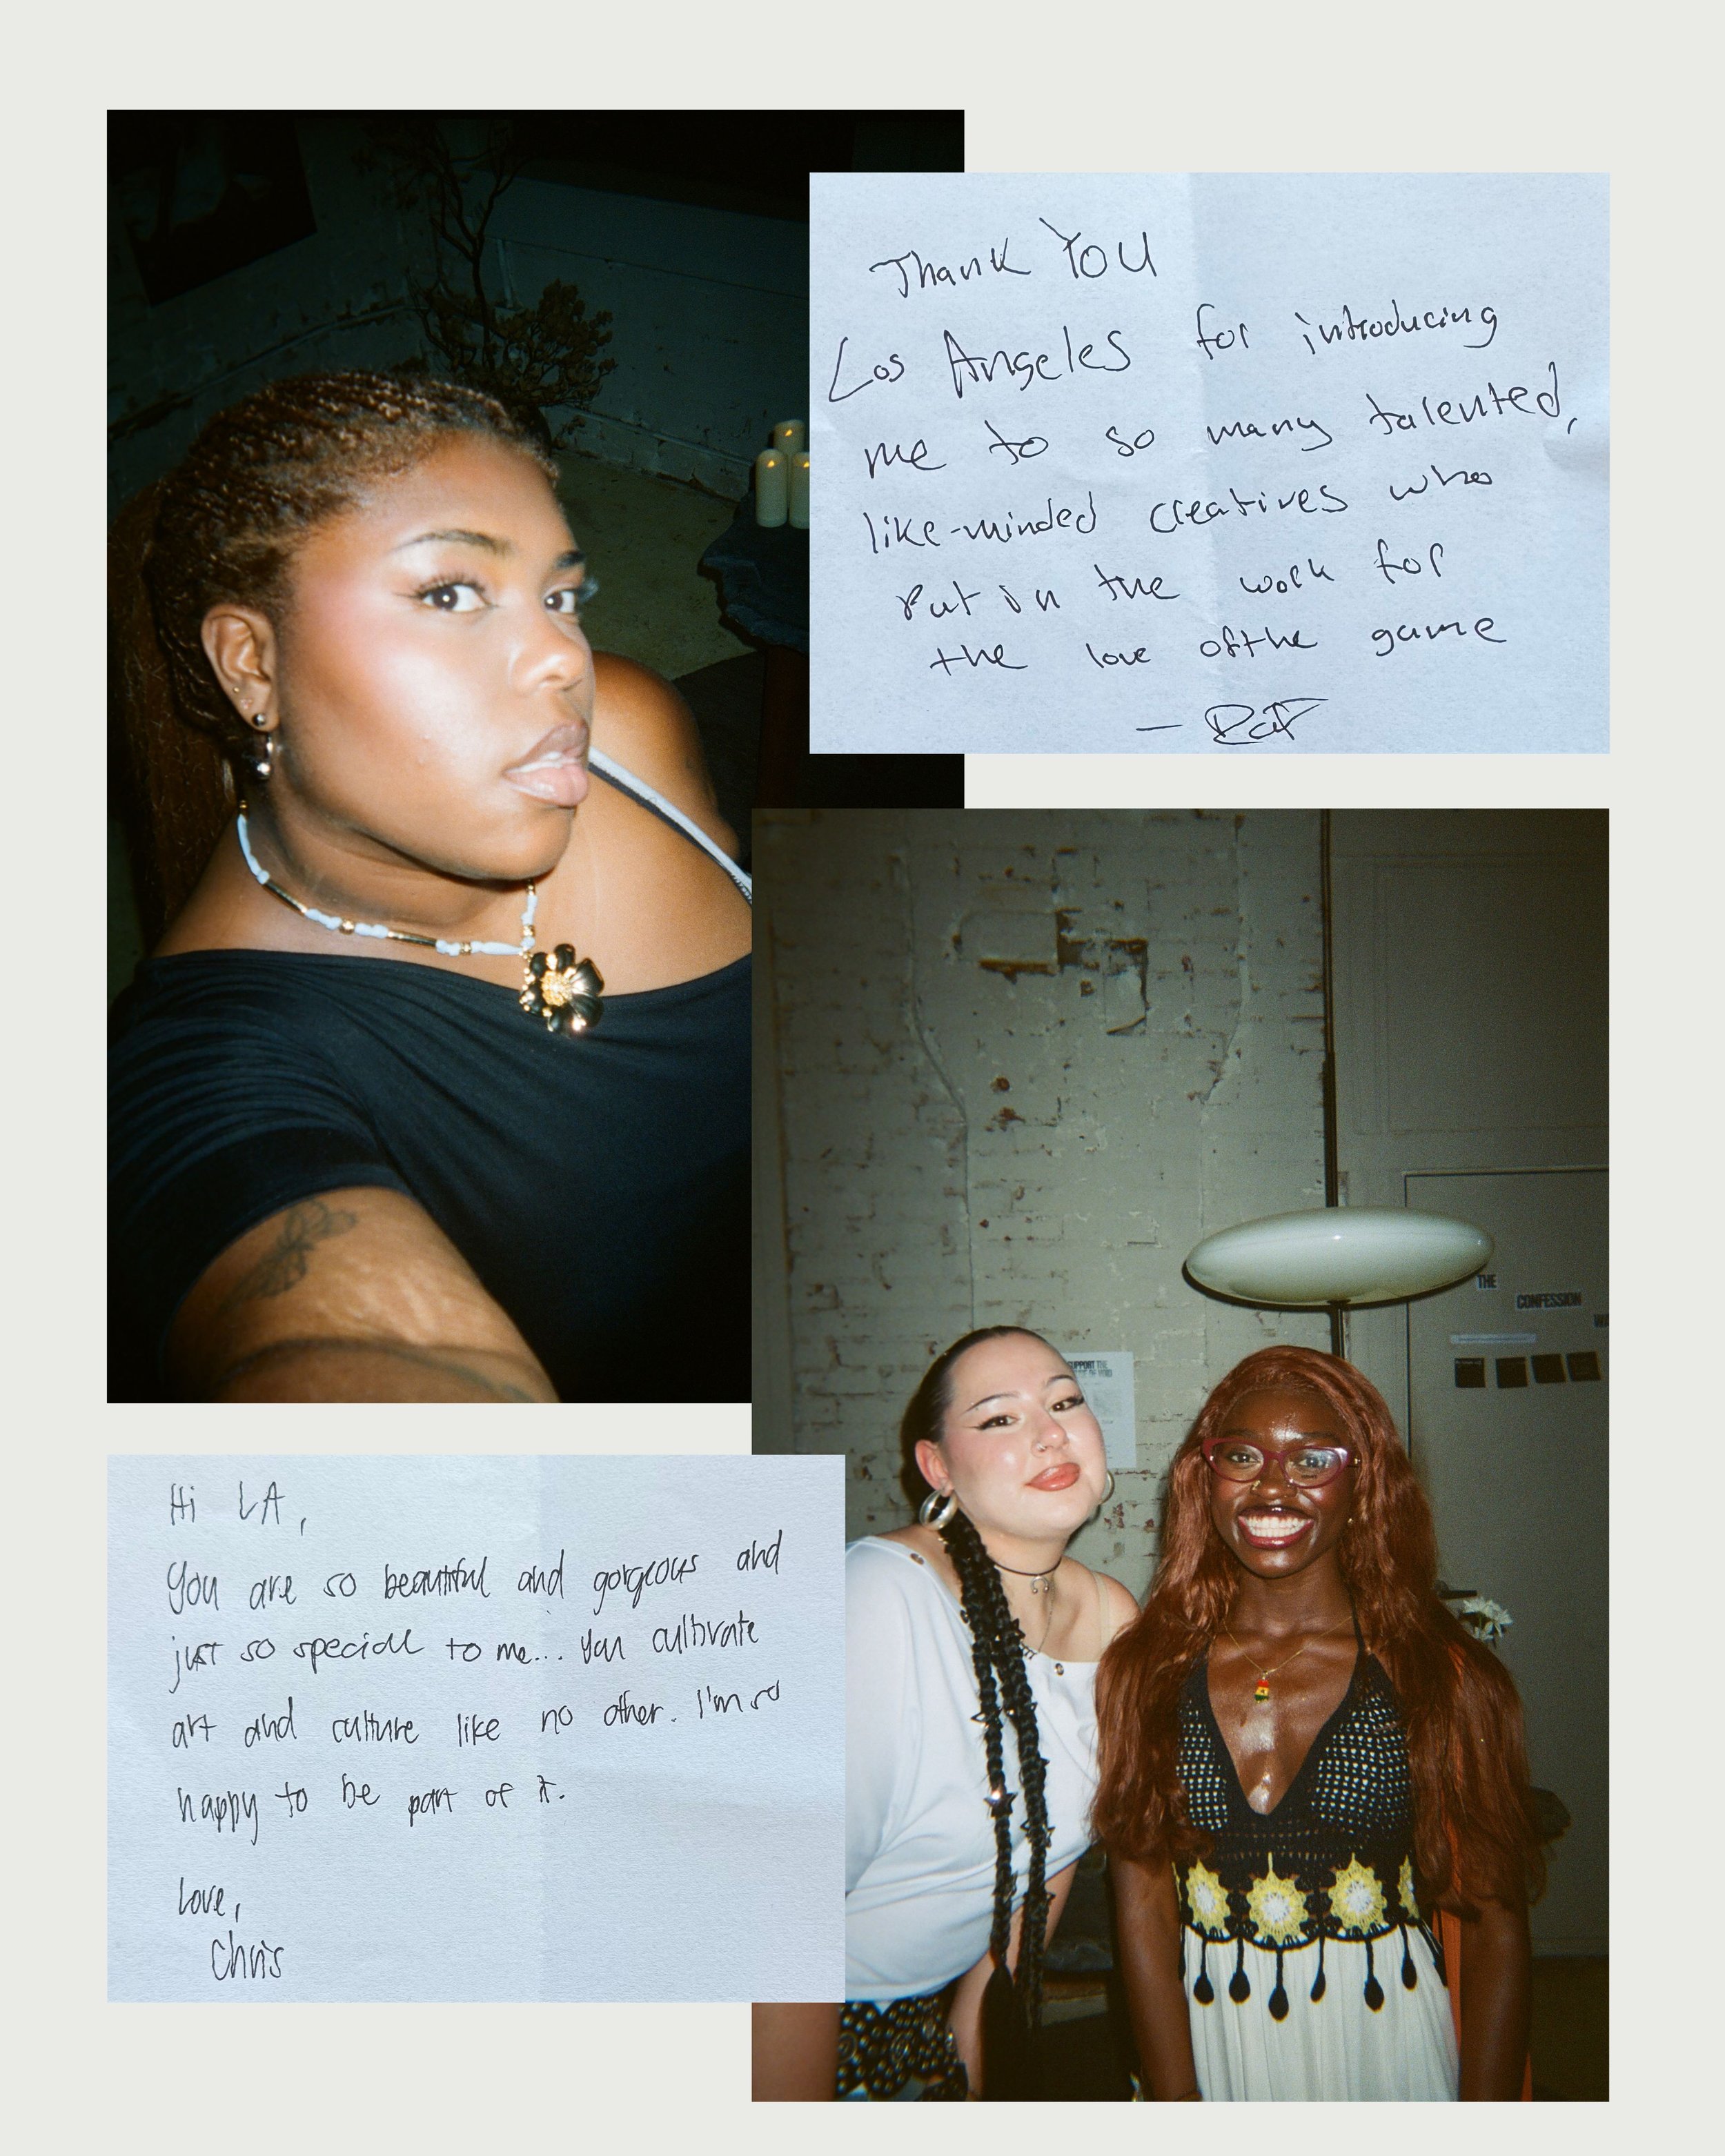 Thank You
Los Angeles for introducing
me to so many talented,
like-minded creatives who
Put in the work for
the love of the game
THE
CONFESSION
SUPPORT THE
Hi LA,
you are so beautiful and gorgeous and
just so special to me... you cultivate
art and culture like no other. I'm so
happy to be part of it.
Love,
Chris